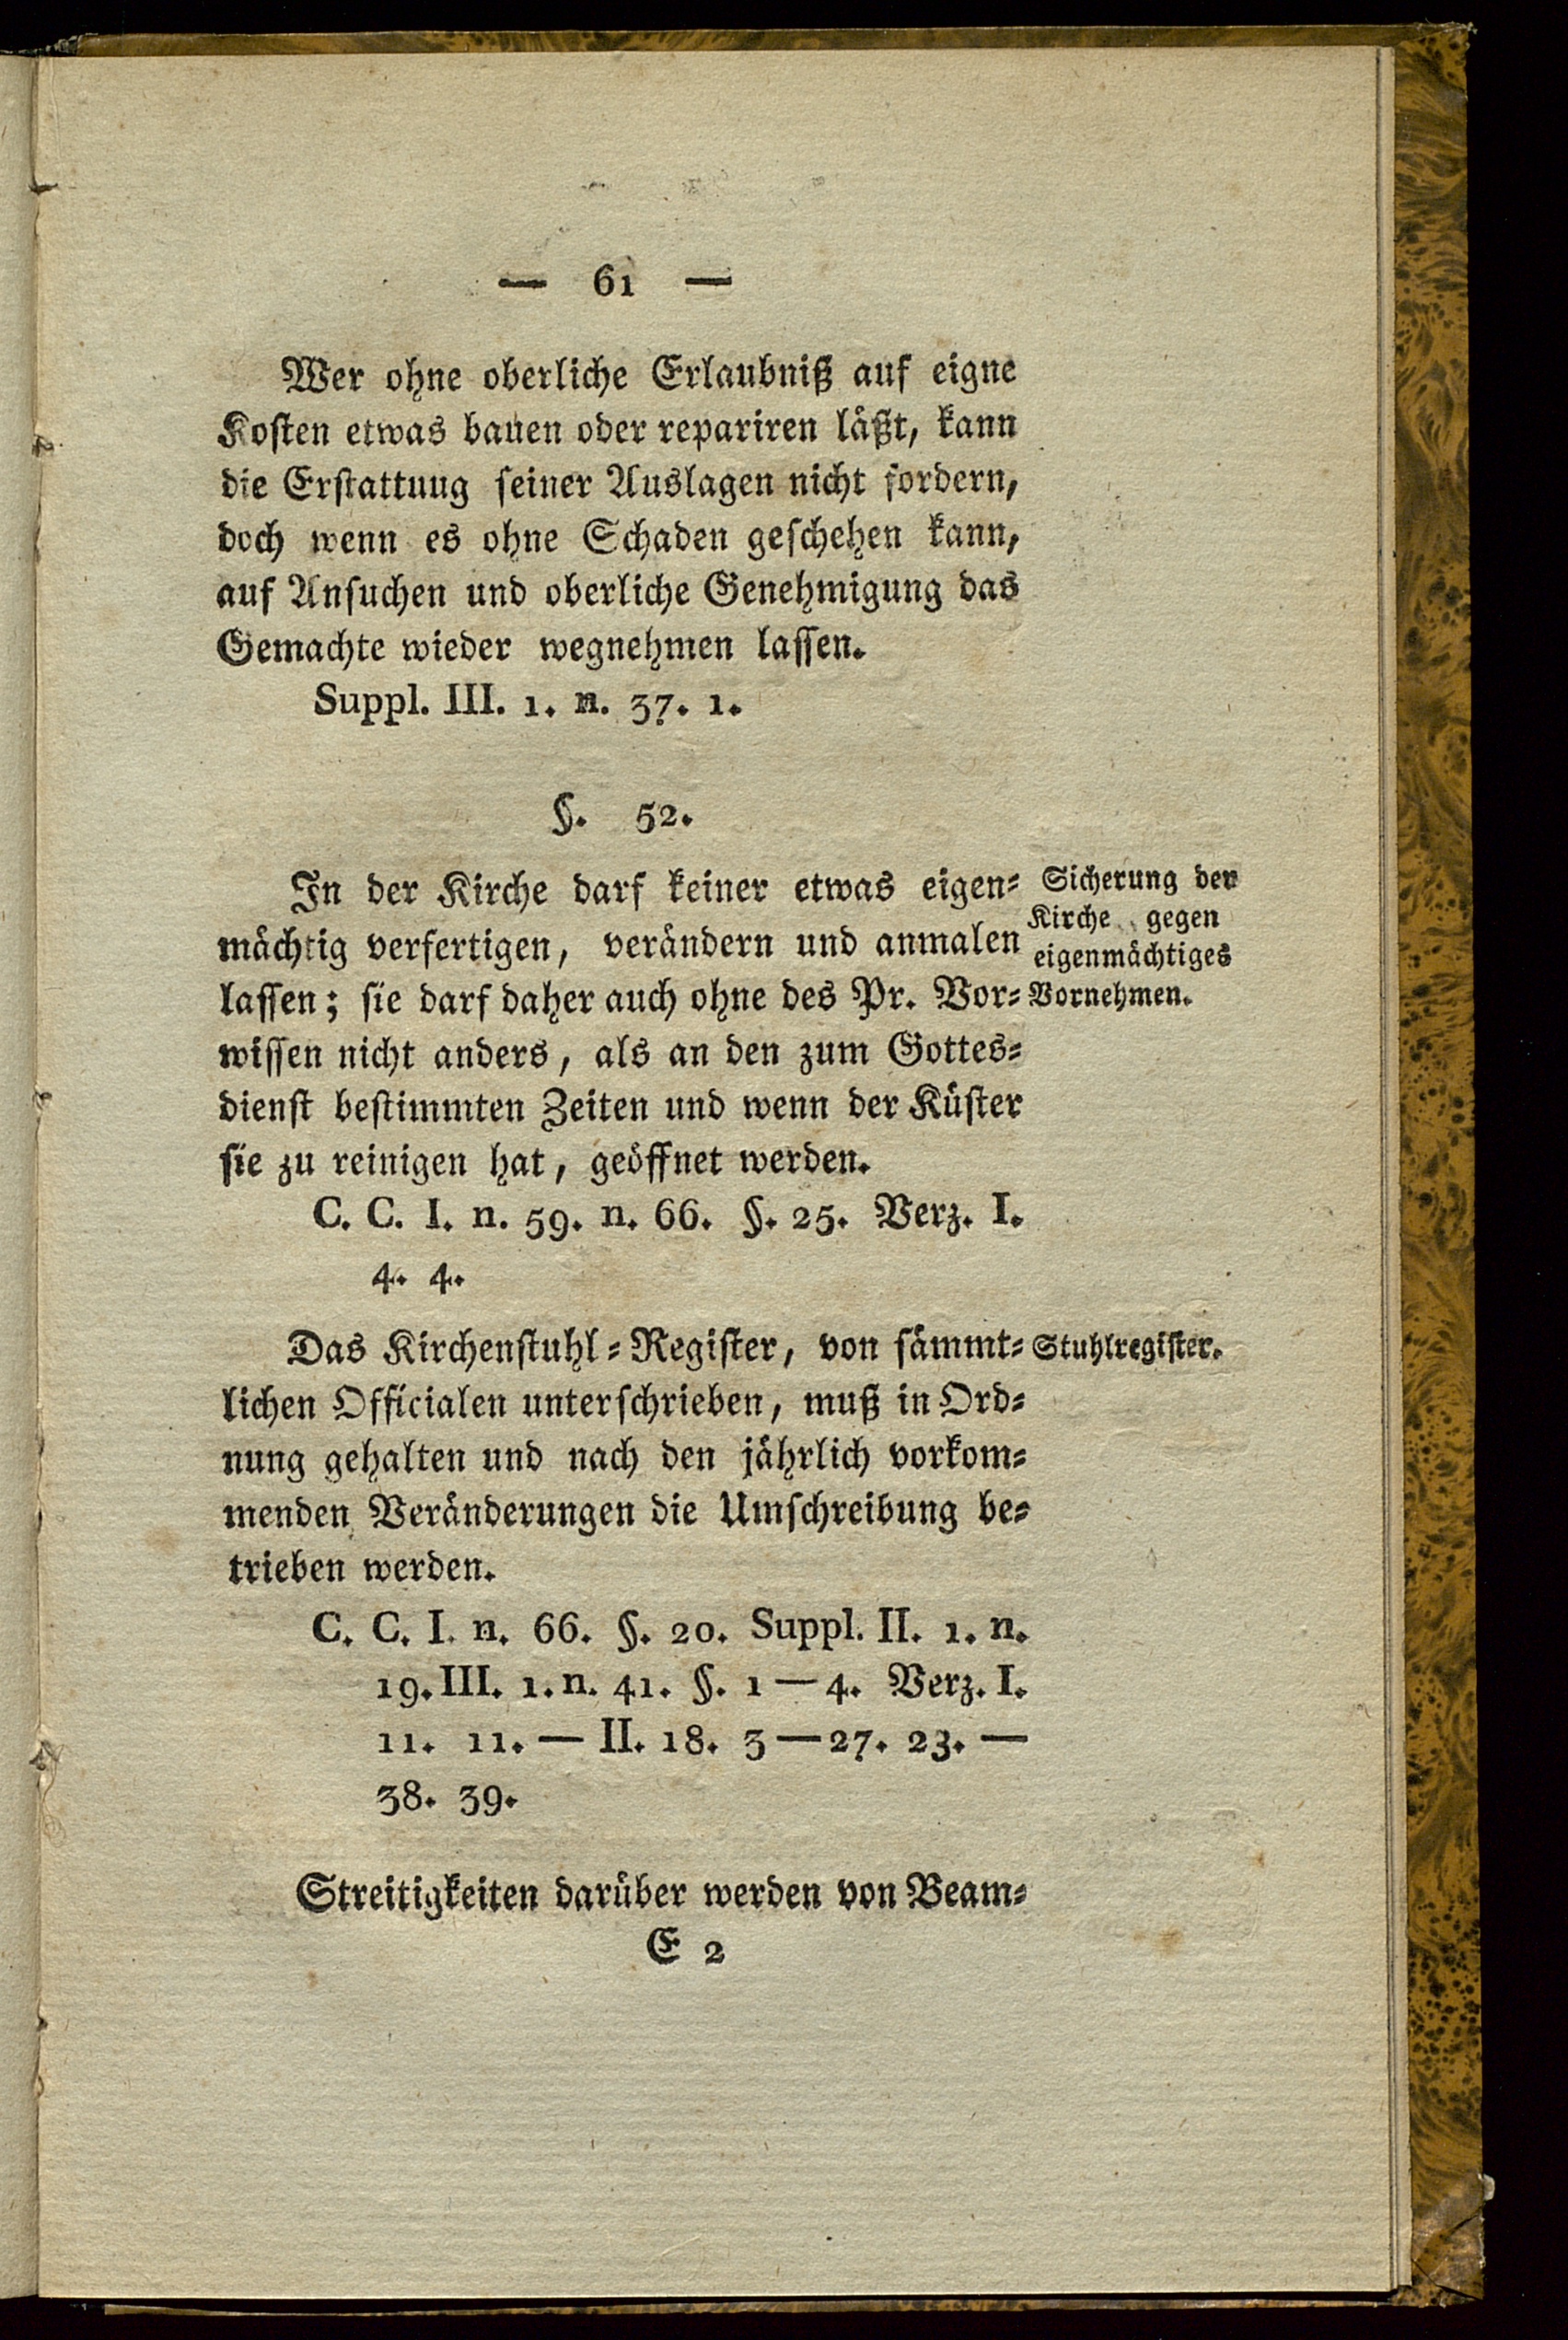 — 61 —
Wer ohne oberliche Erlaubniß auf eigne
Kosten etwas bauen oder repariren läßt, kann
die Erstattung seiner Auslagen nicht fordern,
doch wenn es ohne Schaden geschehen kann,
auf Ansuchen und oberliche Genehmigung das
Gemachte wieder wegnehmen lassen.
Suppl. III. 1. n. 37. 1.
§. 52.
In der Kirche darf keiner etwas eigen-
mächtig verfertigen, verändern und anmalen
lassen; sie darf daher auch ohne des Pr. Vor-
wissen nicht anders, als an den zum Gottes-
dienst bestimmten Zeiten und wenn der Küster
sie zu reinigen hat, geöffnet werden.
Sicherung der
Kirche gegen
eigenmächtiges
Vornehmen.
C. C. I. n. 59. n. 66. §. 25. Verz. I.
4. 4.
Das Kirchenstuhl-Register, von sämmt-
lichen Officialen unterschrieben, muß in Ord-
nung gehalten und nach den jährlich vorkom-
menden Veränderungen die Umschreibung be-
trieben werden.
Stuhlregister.
C. C. I. n. 66. §. 20. Suppl. II. 1. n.
19. III. 1. n. 41. §. 1—4. Verz. I.
11. 11. — II. 18. 3—27. 23. —
38. 39.
Streitigkeiten darüber werden von Beam-
E 2